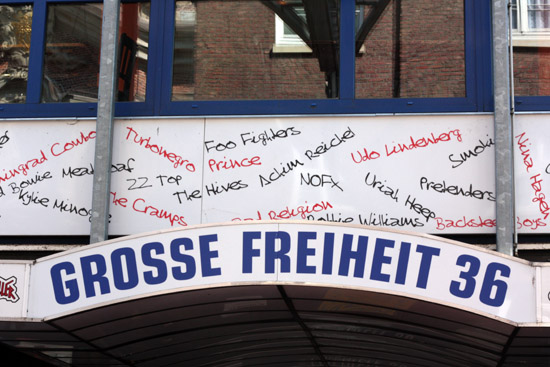 Turbonegro Foo Fighters Udo Lindenberg
Prince Achim Reichel
Bowie Meat Loaf ZZ Top The Hives NOFX Uriah Heep Pretenders
Kylie The Cramps Religion Robbie Williams Backstreet Boys
Nina Hagen
GROSSE FREIHEIT 36